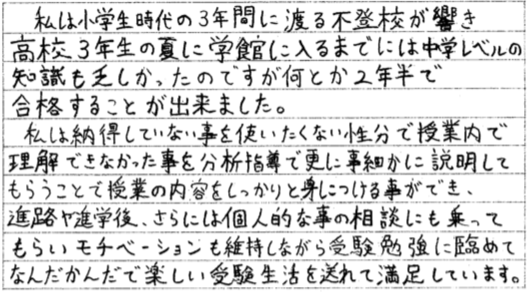 私は小学生時代の3年間に渡る不登校が響き
高校3年生の夏に学館に入るまでには中学レベルの
知識も乏しかったのですが何とか2年半で
合格することが出来ました。
私は納得していない事を使いたくない性分で授業内で
理解できなかった事を分析指導で更に事細かに説明して
もらうことで授業の内容をしっかりと身につける事ができ、
進路や進学後、さらには個人的な事の相談にも乗って
もらいモチベーションも維持しながら受験勉強に臨めて
なんだかんだで楽しい受験生活を送れて満足しています。